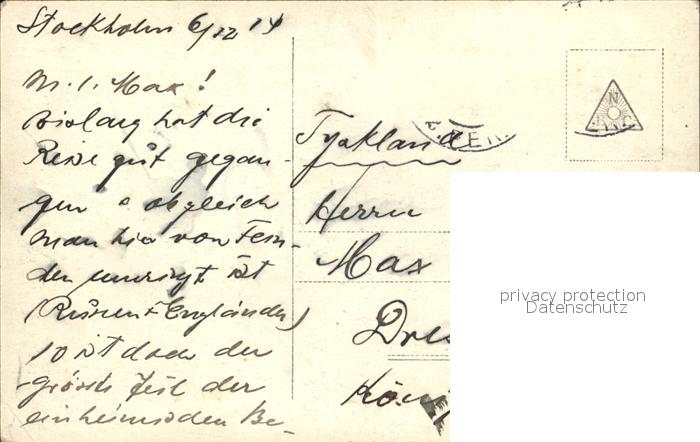 Stockholm 6/12 14
M. l. Max!
Bislang hat die
Reise gut gegan-
gen obgleich
man hier von Fein-
den umringt ist
(Russen + Engländer)
so ist doch der
grösste Teil der
einheimischen Be-
Tyskland
Herrn
Max
Dres
Kön
N
privacy protection
Datenschutz